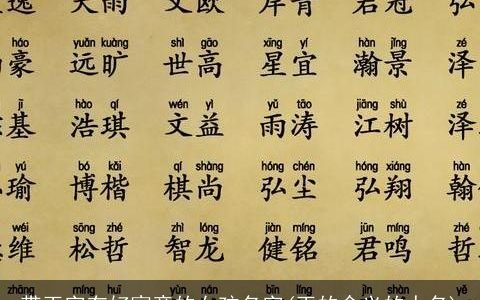 天雨 文欧 君冠 弘
háo yuǎn kuàng shì gāo xīng yí hàn jǐng zé
豪 远旷 世高 星宜 瀚景 泽
jī hào qí wén yì yǔ tāo jiāng shù zé
基 浩琪 文益 雨涛 江树 泽
yú bó kǎi qí shàng hóng chén hóng xiáng hàn
瑜 博楷 棋尚 弘尘 弘翔 翰
wéi sōng zhé zhì lóng jiàn míng jūn míng zhé
维 松哲 智龙 健铭 君鸣 哲